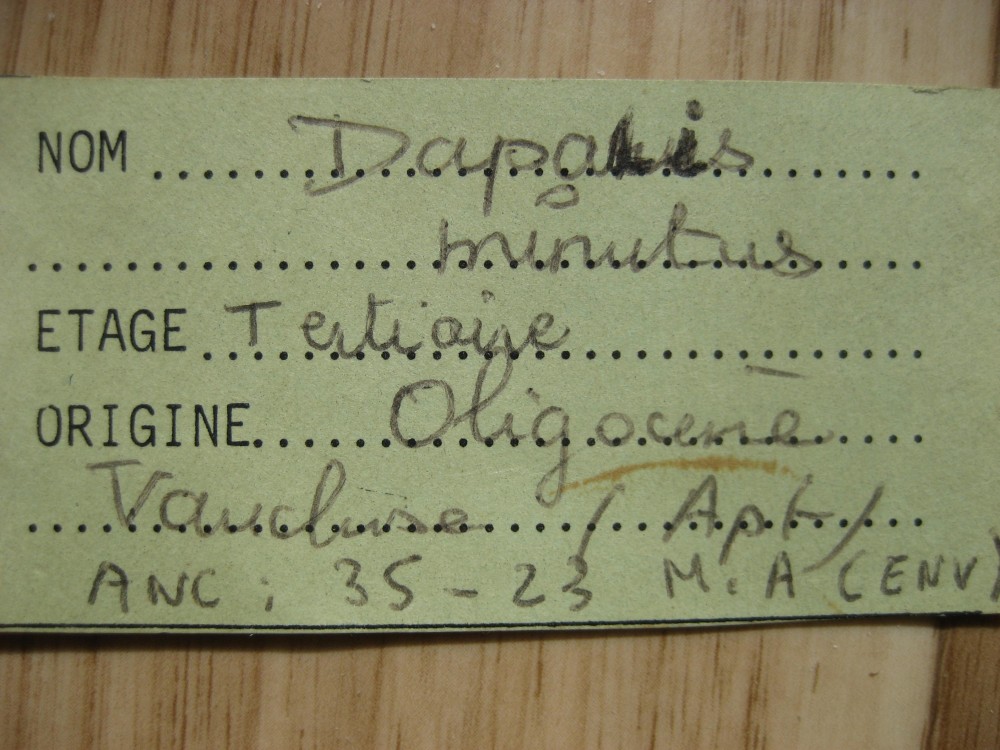 NOM Dapalis
minutus
ETAGE Tertiaire
ORIGINE Oligocène
Vaucluse (Apt)
ANC: 35-23 M.A (ENV)